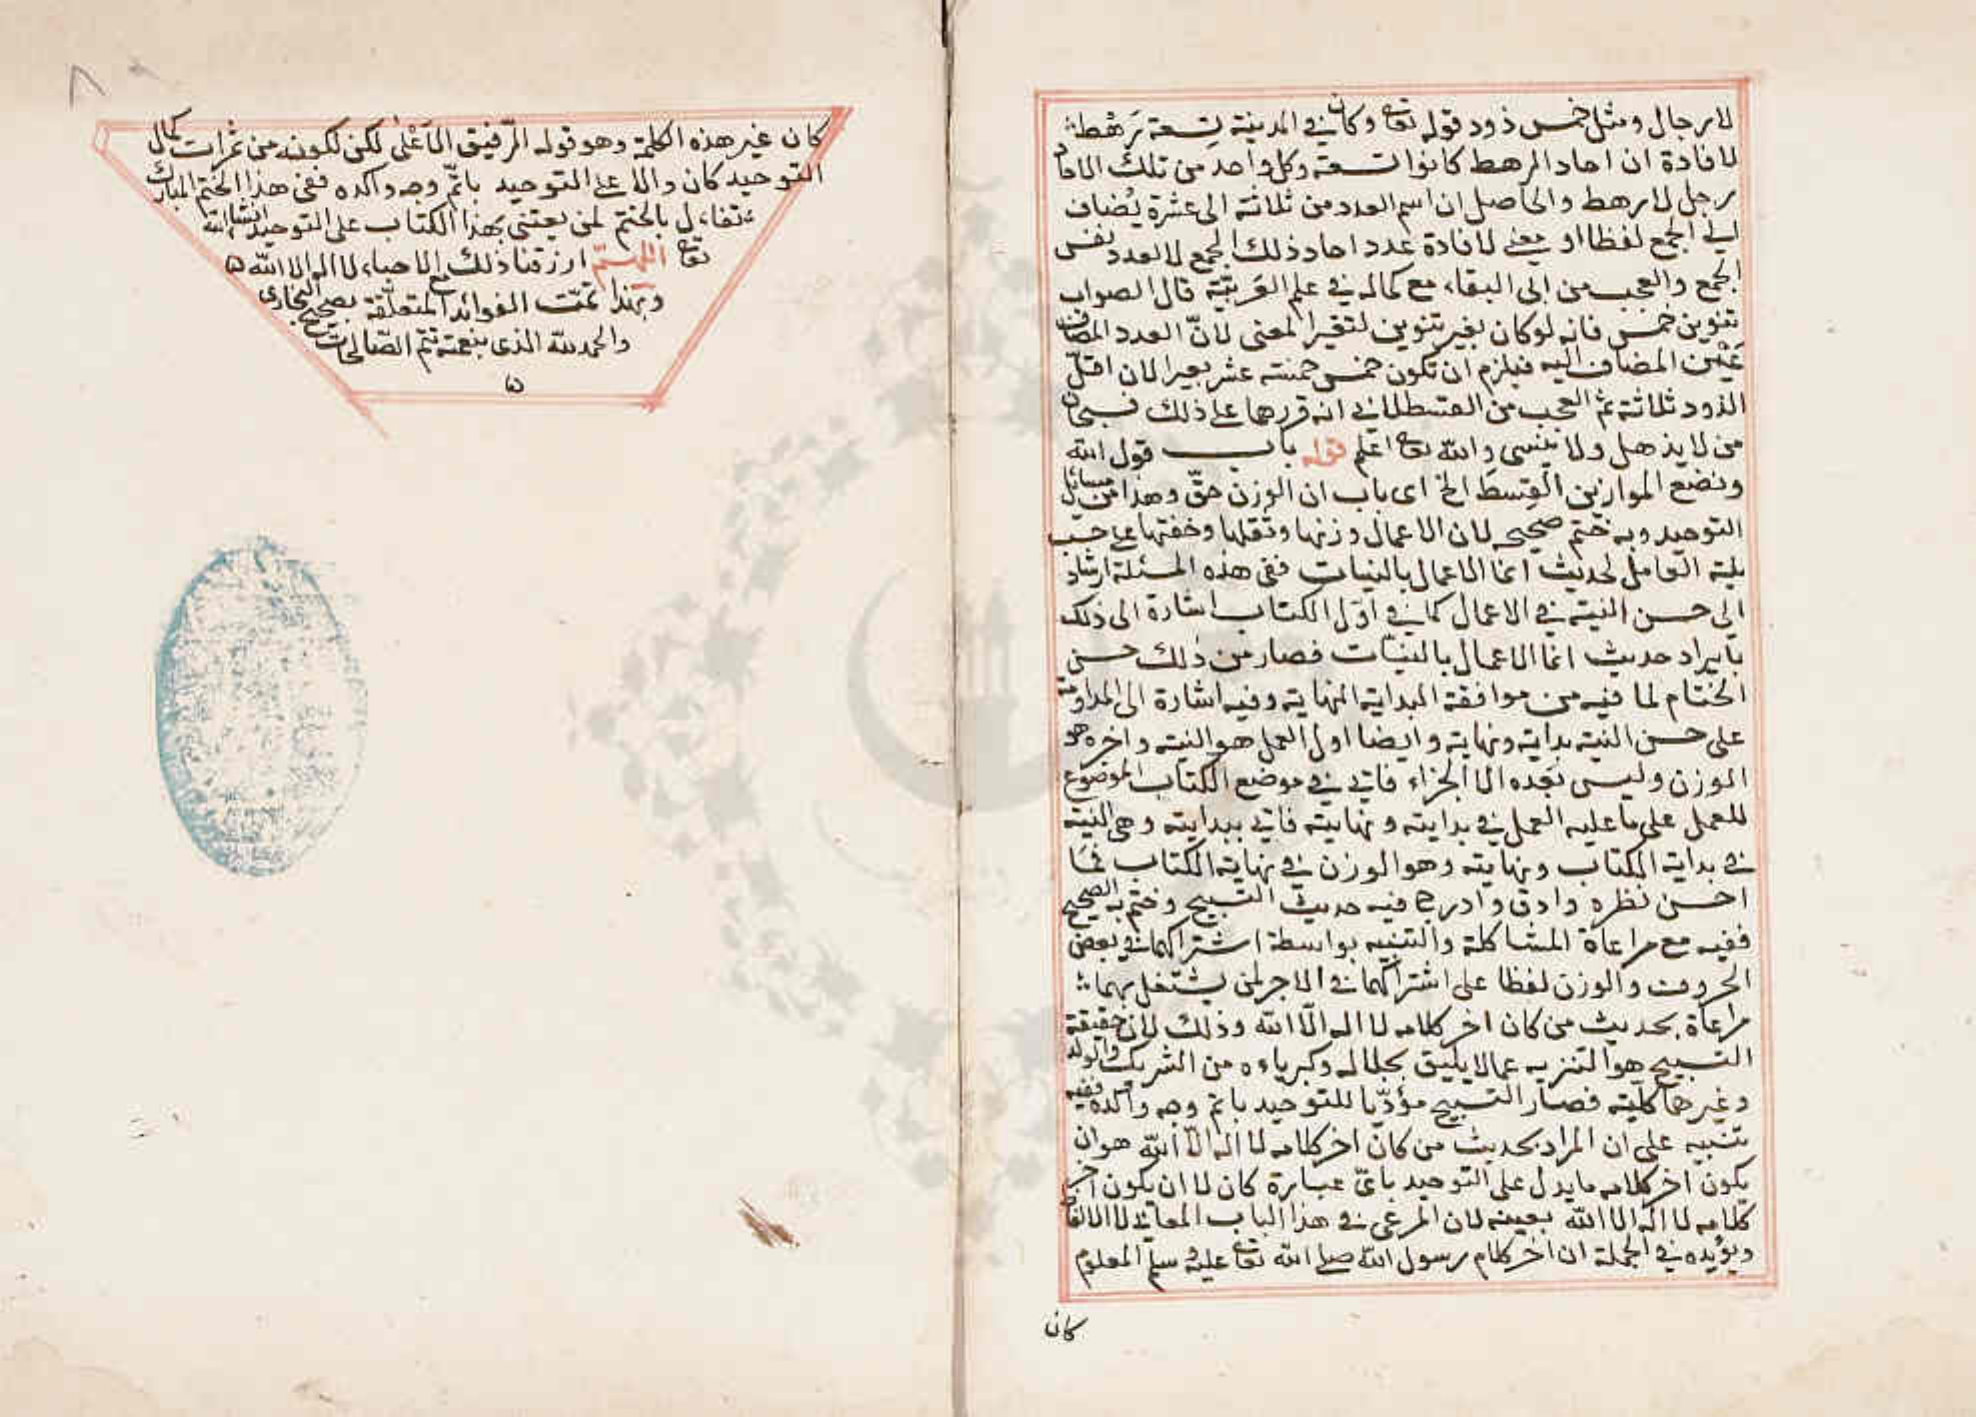 لا رجال ومثل خمس ذود قوله تعا وكان في المدينة تسعة رهط
لافادة ان احاد الرهط كانوا تسعة وكل واحد من تلك الاحاد
رجل لا رهط والحاصل ان اسم العدد من ثلاثة الى عشرة يُضاف
الى الجمع لفظا او معنى لافادة عدد احاد ذلك الجمع لا لعدد نفس
الجمع والعجب من ابى البقاء مع كماله في علم العَربيّة قال الصواب
تنوين خمس فانه لو كان بغير تنوين لتغير المعنى لانّ العدد المضاف
غَيْر المضاف اليه فيلزم ان تكون خمس خمسة عشر بعيرا لان اقلّ
الذود ثلاثة ثم العجب من القسطلاني انه قررها على ذلك فسبحان
من لا يذهل ولا ينسى والله تعا اعلم قوله باب قول الله
ونضع الموازين القِسطَ الخ اى باب ان الوزن حقّ وهذا من مسائل
التوحيد وبه ختم صحيحه لان الاعمال وزنها وثقلها وخفتها على حسب
نية العامل لحديث انما الاعمال بالنيات ففى هذه المسئلة ارشاد
الى حسن النية في الاعمال كما في اوّل الكتاب اشارة الى ذلك
بايراد حديث انما الاعمال بالنيّات فصار من ذلك حسن
الختام لما فيه من موافقة البداية النهاية وفيه اشارة الى المداومة
على حسن النية بداية ونهاية وايضا اول العمل هو النية واخره هو
الوزن وليس بَعْده الا الجزاء فاتى في موضع الكتاب الموضوع
للعمل على ما عليه العمل في بدايته ونهايته فاتى ببدايته وهى النية
في بداية الكتاب ونهايته وهو الوزن في نهاية الكتاب فمَا
احسن نظره وادق وادرج فيه حديث التسبيح وختم به الصحيح
ففيه مع مراعاة المشاكلة والتنبيه بواسطة اشتراكهما في بعض
الحروف والوزن لفظا على اشتراكهما في الاجر لمن يشتغل بهما
مراعاة بحديث من كان اخر كلامه لا اله الّا الله وذلك لان حقيقة
التسبيح هو التنزيه عما لا يليق بجلاله وكبرياءه من الشريك والولد
وغيرها كليّة فصار التسبيح مؤدّيا للتوحيد باتم وجه وآكده ففيه
تنبيه على ان المراد بحديث من كان اخر كلامه لا اله الّا الله هو ان
يكون اخر كلامه ما يدل على التوحيد باىّ عبارة كان لا ان يكون اخر
كلامه لا اله الا الله بعينه لان المرعى في هذا الباب المعانى لا الالفاظ
ويؤيده في الجملة ان اخر كلام رسول الله صلى الله تعا عليه وسلم المعلوم
كان
كان غير هذه الكلمة وهو قوله الرّفيق الاَعْلى لكن لكونه من ثمرات كمال
التوحيد كان دالا على التوحيد باتمّ وجه واكده ففى هذا الختم المبارك
تفاءل بالختم لمن يعتنى بهذا الكتاب على التوحيد انشاء الله
تعا اللهمّ ارزقنا ذلك مع الاحباء لا اله الا الله ۵
وبهذا تمّت الفوائد المتعلّقة بصحيح البخارى
والحمد لله الذى بنعمته تتم الصّالحات
۵
٨